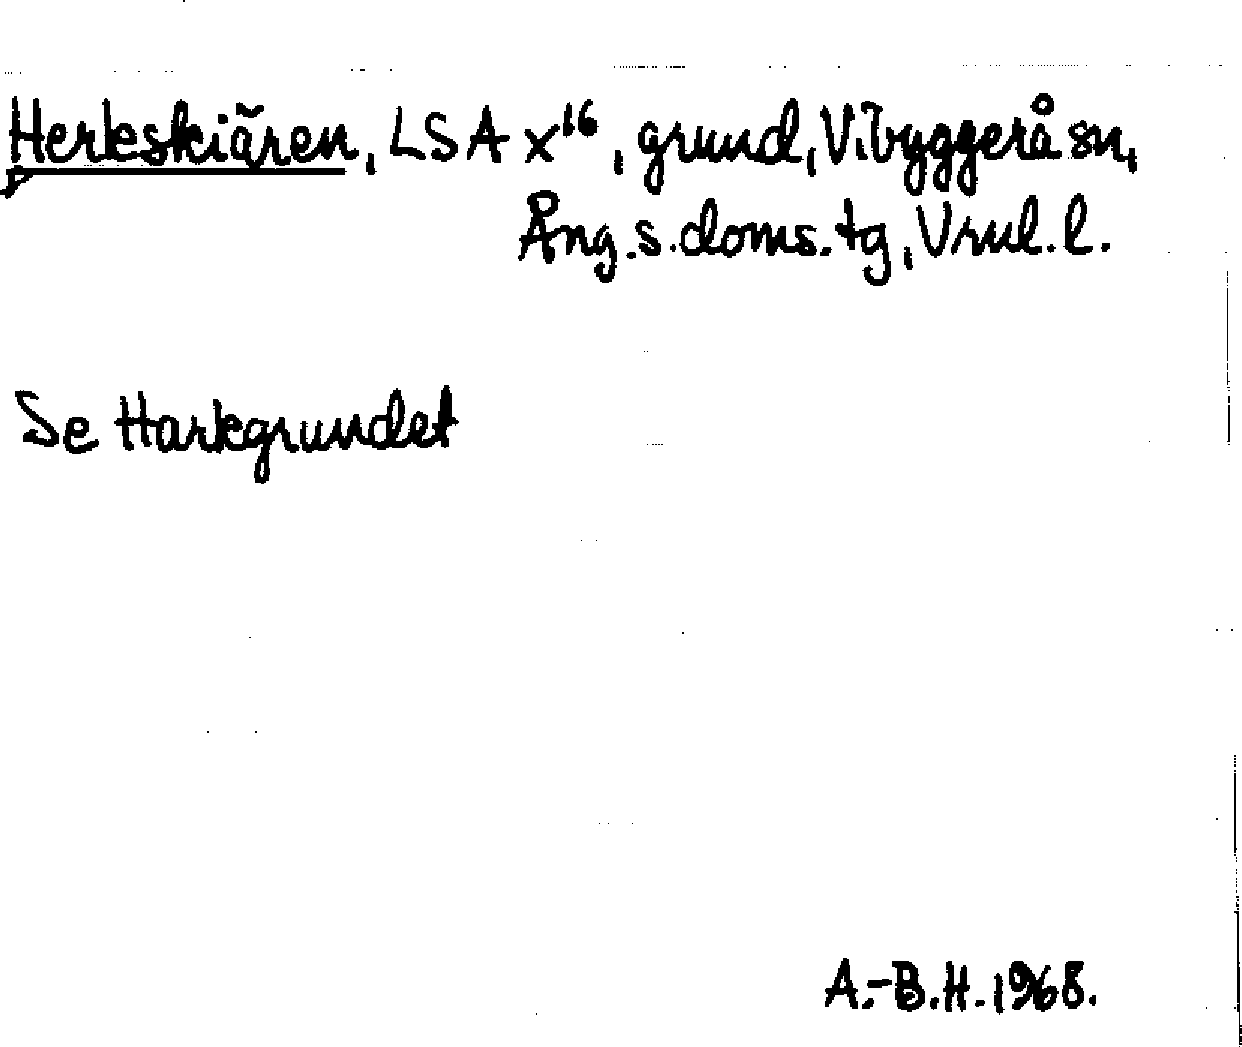 Herkeskiären, LSA x¹⁶, grund, Vibyggerå sn,
Ång.s.doms.tg, Vnul.l.
Se Harkgrundet
A.-B.H. 1968.